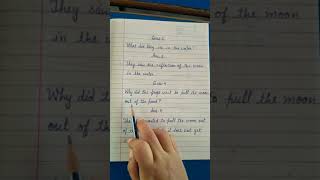 Ques-3
What did they see in the water?
Ans-3
They saw the reflection of the moon
in the water.
Ques-4
Why did the frogs want to pull the moon
out of the pond?
Ans-4
wanted to pull the moon out
of the it does not get